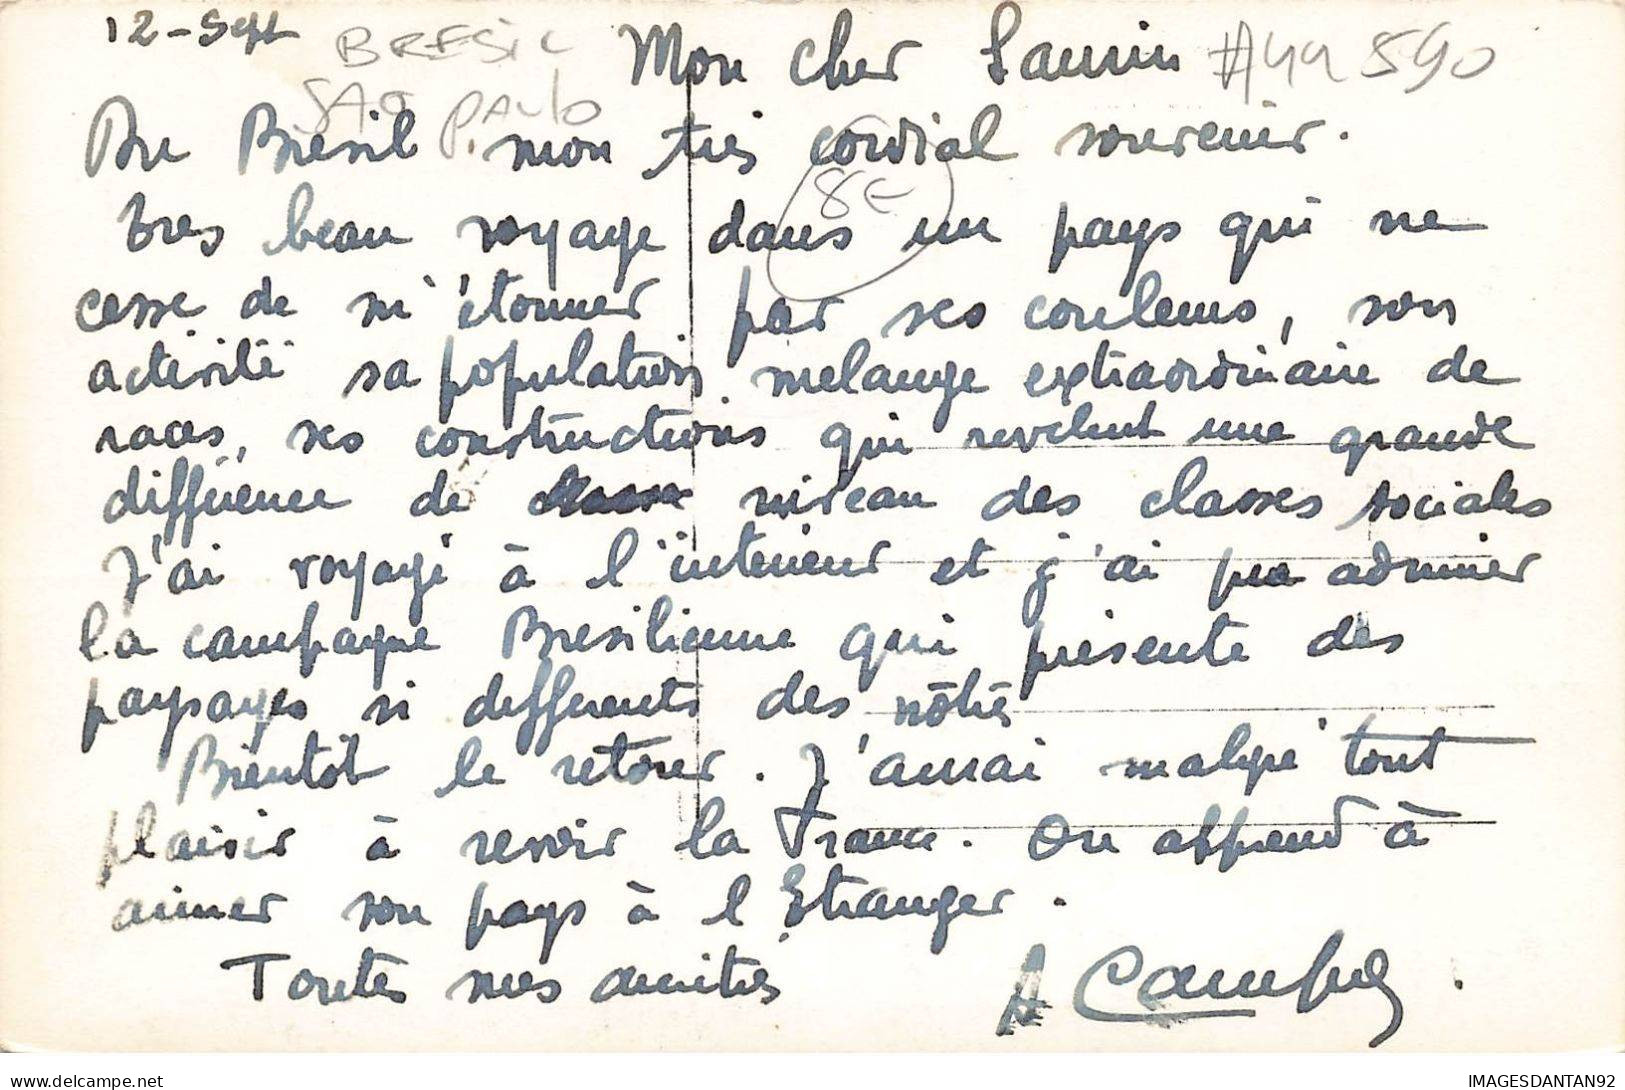 12 - Sept
BRESIL
SAO PAULO
#49590
8E
Mon cher
Du Bresil mon très cordial souvenir.
Tres beau voyage dans un pays qui ne
cesse de m'étonner par ses couleurs, son
activité sa population, melange extraordinaire de
races, ses constructions qui revelent une grande
difference de niveau des classes sociales
J'ai voyagé à l'interieur et j'ai pu admirer
la campagne Bresilienne qui présente des
paysages si differents des nôtres
Bientôt le retour. J'aurai malgré tout
plaisir à revoir la France. On apprend à
aimer son pays à l'Etranger.
Toutes mes amitiés
A
IMAGESDANTAN92